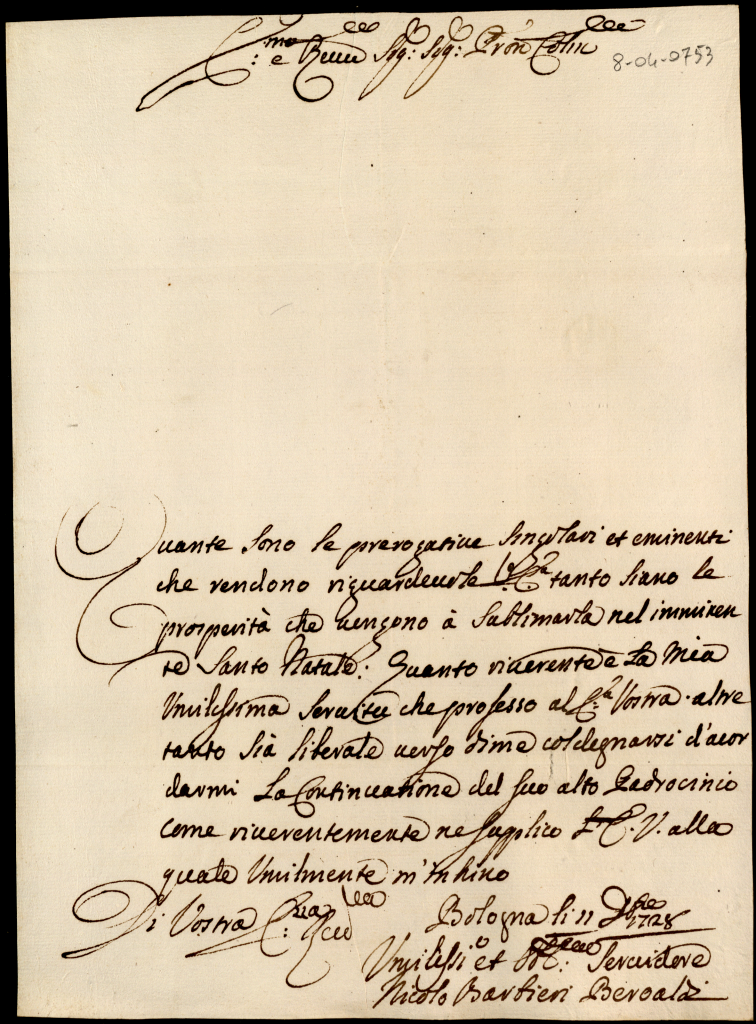 E:mo e Rmo Sig: Sig: Pron Colmo
8-04-0753
Quante sono le prerogative singolari et eminenti
che rendono riguardevole V. E.za tanto siano le
prosperità che vengono à sublimarla nel imminen
te Santo Natale: Quanto riverente è La Mia
Umilissima Servitù che professo al E.za Vostra altre
tanto sia liberale verso di me col degnarsi d'acor
darmi La Continuatione del suo alto Padrocinio
come riverentemente ne supplico L'E. V. alla
quale Umilmente m'Inhino
Di Vostra E:za Rma
Bologna li 11 Xbre 1728
Umilissi.o et Servidore
Nicolo Barbieri Beroaldi